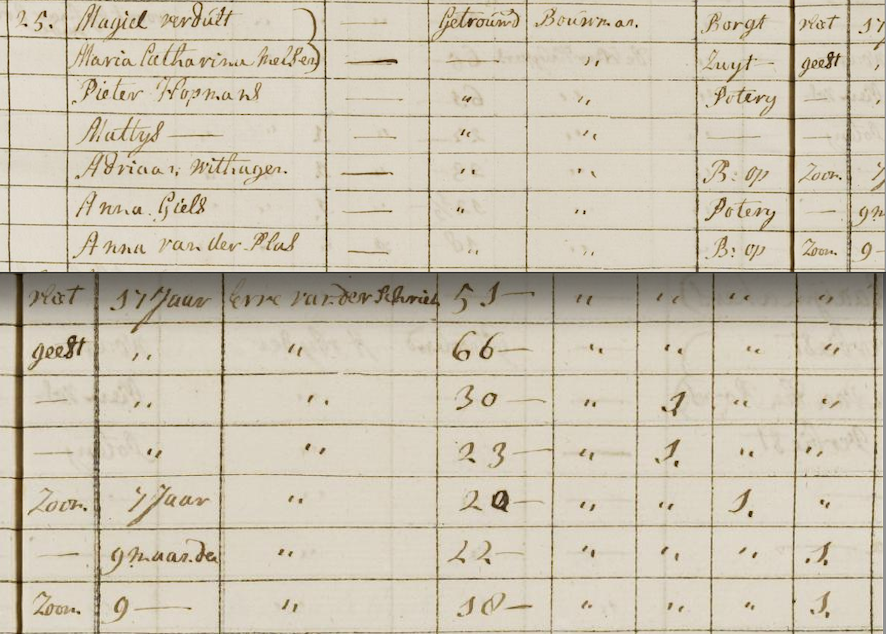 25. Magiel verdult — Getround Bouwman. Borgt vliet 17
Maria Catharina — „ „ Zuyt geest „
Pieter Hopmans — „ „ Potery —
Mattys — — „ „ — —
Adriaan Withagen. — „ „ B: op Zoon. 7
Anna Giels — „ „ Potery — 9m
Anna van der Plas — „ „ B: op Zoon. 9 –
vliet 17 Jaar Erve van der Schriek 51 — „ „ „ „
geest „ „ 66 — „ „ „ „
— „ „ 30 — „ 1 „ „
— „ „ 23 — „ 1. „ „
Zoon. 7 Jaar „ 20 — „ „ 1. „
— 9 maanden „ 22 — „ „ „ 1.
Zoon. 9 — „ 18 — „ „ „ 1.